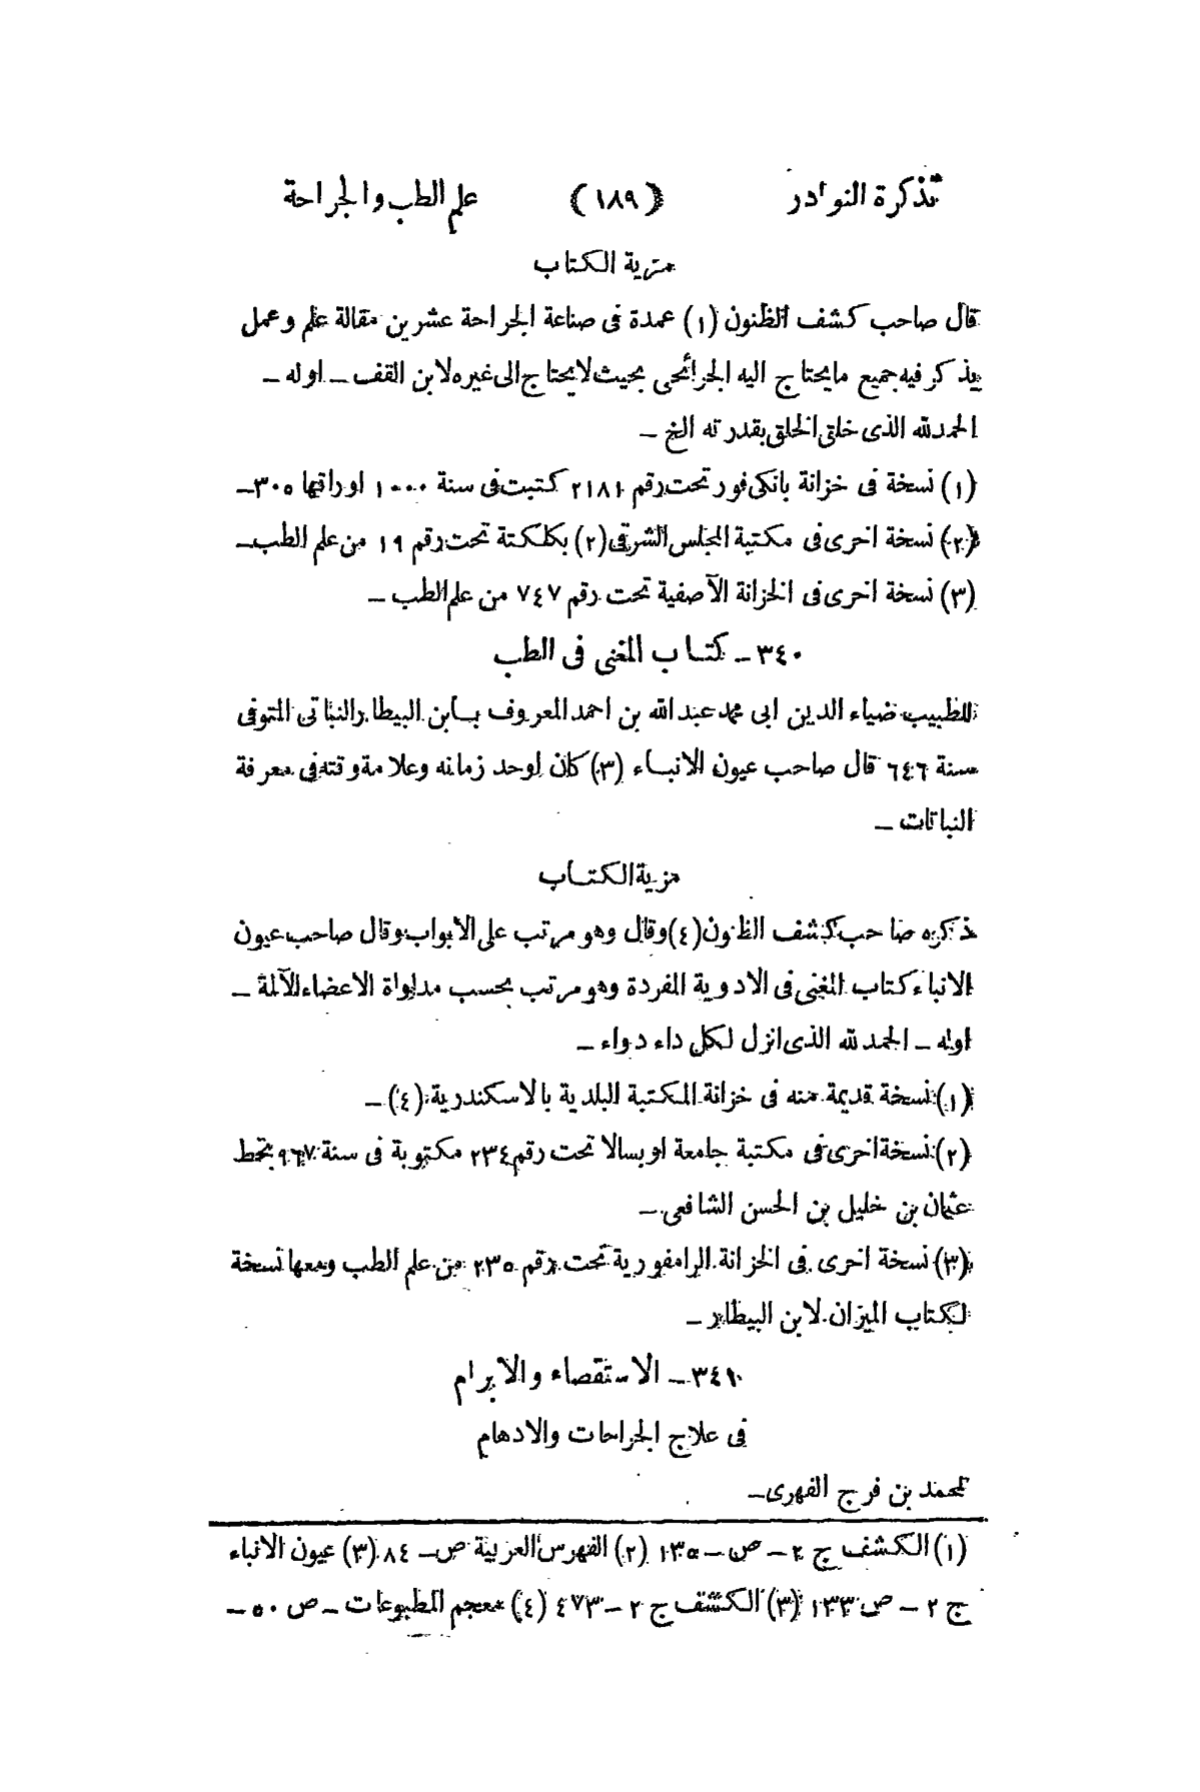 تذكرة النوادر (١٨٩) علم الطب والجراحة
مزية الكتاب
قال صاحب كشف الظنون (١) عمدة فى صناعة الجراحة عشرين مقالة علم وعمل
يذكر فيه جميع مايحتاج اليه الجرائحى بحيث لايحتاج الى غيره لابن القف ـ اوله ـ
الحمدلله الذى خلق الخلق بقدرته الخ ـ
(١) نسخة فى خزانة بانكى فور تحت رقم ٢١٨١ كتبت فى سنة ١٠٠٠ اوراقها ٣٠٥ـ
(٢) نسخة اخرى فى مكتبة المجلس الشرقى (٢) بكلكتة تحت رقم ١٩ من علم الطب ـ
(٣) نسخة اخرى فى الخزانة الآصفية تحت رقم ٧٤٧ من علم الطب ـ
٣٤٠ ـ كتاب المغنى فى الطب
للطبيب ضياء الدين ابى محمد عبدالله بن احمد المعروف بابن البيطار النباتى المتوفى
سنة ٦٤٦ قال صاحب عيون الانباء (٣) كان اوحد زمانه وعلامة وقته فى معرفة
النباتات ـ
مزية الكتاب
ذكره صاحب كشف الظنون (٤) وقال وهو مرتب على الأبواب وقال صاحب عيون
الانباء كتاب المغنى فى الادوية المفردة وهو مرتب بحسب مداواة الاعضاء الآلمة ـ
اوله ـ الحمد لله الذى انزل لكل داء دواء ـ
(١) نسخة قديمة منه فى خزانة المكتبة البلدية بالاسكندرية (٤) ـ
(٢) نسخة اخرى فى مكتبة جامعة اوبسالا تحت رقم ٢٣٤ مكتوبة فى سنة ٩٦٧ بخط
عثمان بن خليل بن الحسن الشافعى ـ
(٣) نسخة اخرى فى الخزانة الرامفورية تحت رقم ٢٣٥ من علم الطب ومعها نسخة
لكتاب الميزان لابن البيطار ـ
٣٤١ ـ الاستقصاء والابرام
فى علاج الجراحات والادهام
لمحمد بن فرج الفهرى ـ
(١) الكشف ج ٢ ـ ص ـ ١٣٥ (٢) الفهرس العربية ص ـ ٨٤ (٣) عيون الانباء
ج ٢ ـ ص ١٣٣ (٣) الكشف ج ٢ ـ ٤٧٣ (٤) معجم المطبوعات ـ ص ٥٠ ـ